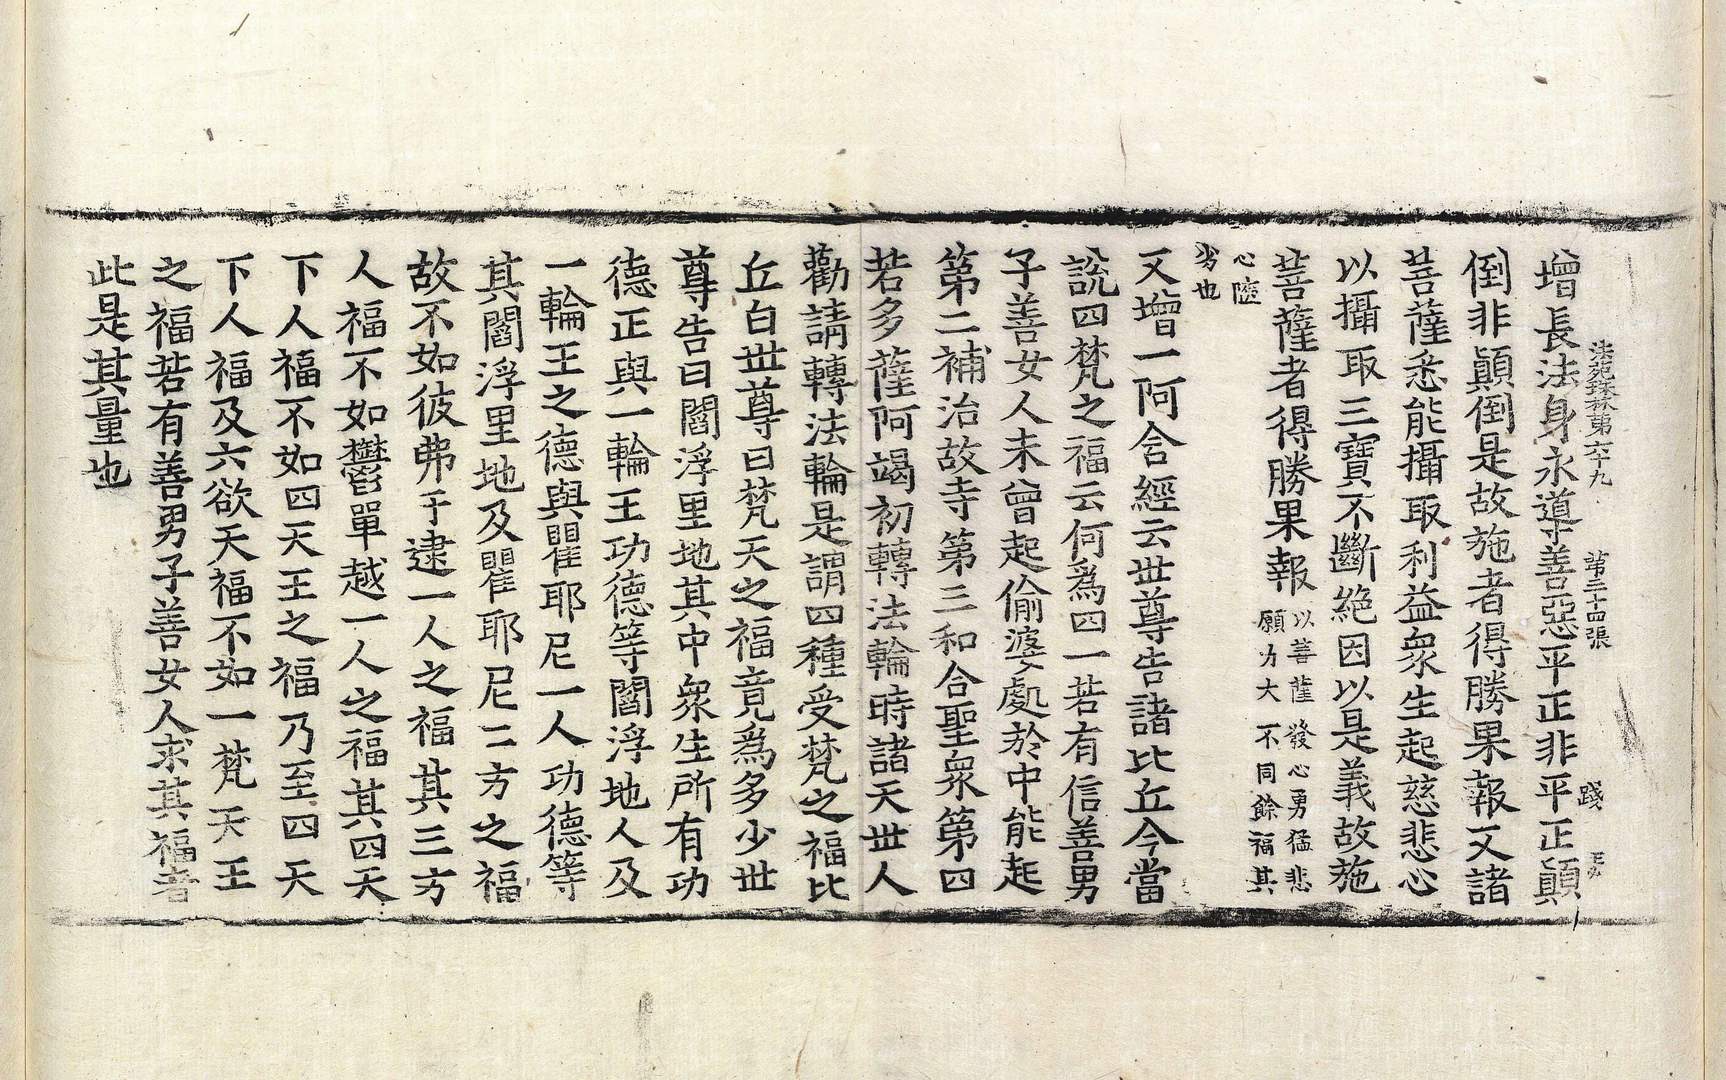 法苑珠林第六十九 第二十四張 踐
增長法身永導善惡平正非平正顚
倒非顚倒是故施者得勝果報又諸
菩薩悉能攝取利益衆生起慈悲心
以攝取三寶不斷絶因以是義故施
菩薩者得勝果報
以菩薩發心勇猛悲
願力大不同餘福其
心陿
劣也
又增一阿含經云世尊告諸比丘今當
說四梵之福云何爲四一若有信善男
子善女人未曾起偷婆處於中能起
第二補治故寺第三和合聖衆第四
若多薩阿竭初轉法輪時諸天世人
勸請轉法輪是謂四種受梵之福比
丘白世尊曰梵天之福竟爲多少世
尊告曰閻浮里地其中衆生所有功
德正與一輪王功德等閻浮地人及
一輪王之德與瞿耶尼一人功德等
其閻浮里地及瞿耶尼二方之福
故不如彼弗于逮一人之福其三方
人福不如鬱單越一人之福其四天
下人福不如四天王之福乃至四天
下人福及六欲天福不如一梵天王
之福若有善男子善女人求其福者
此是其量也